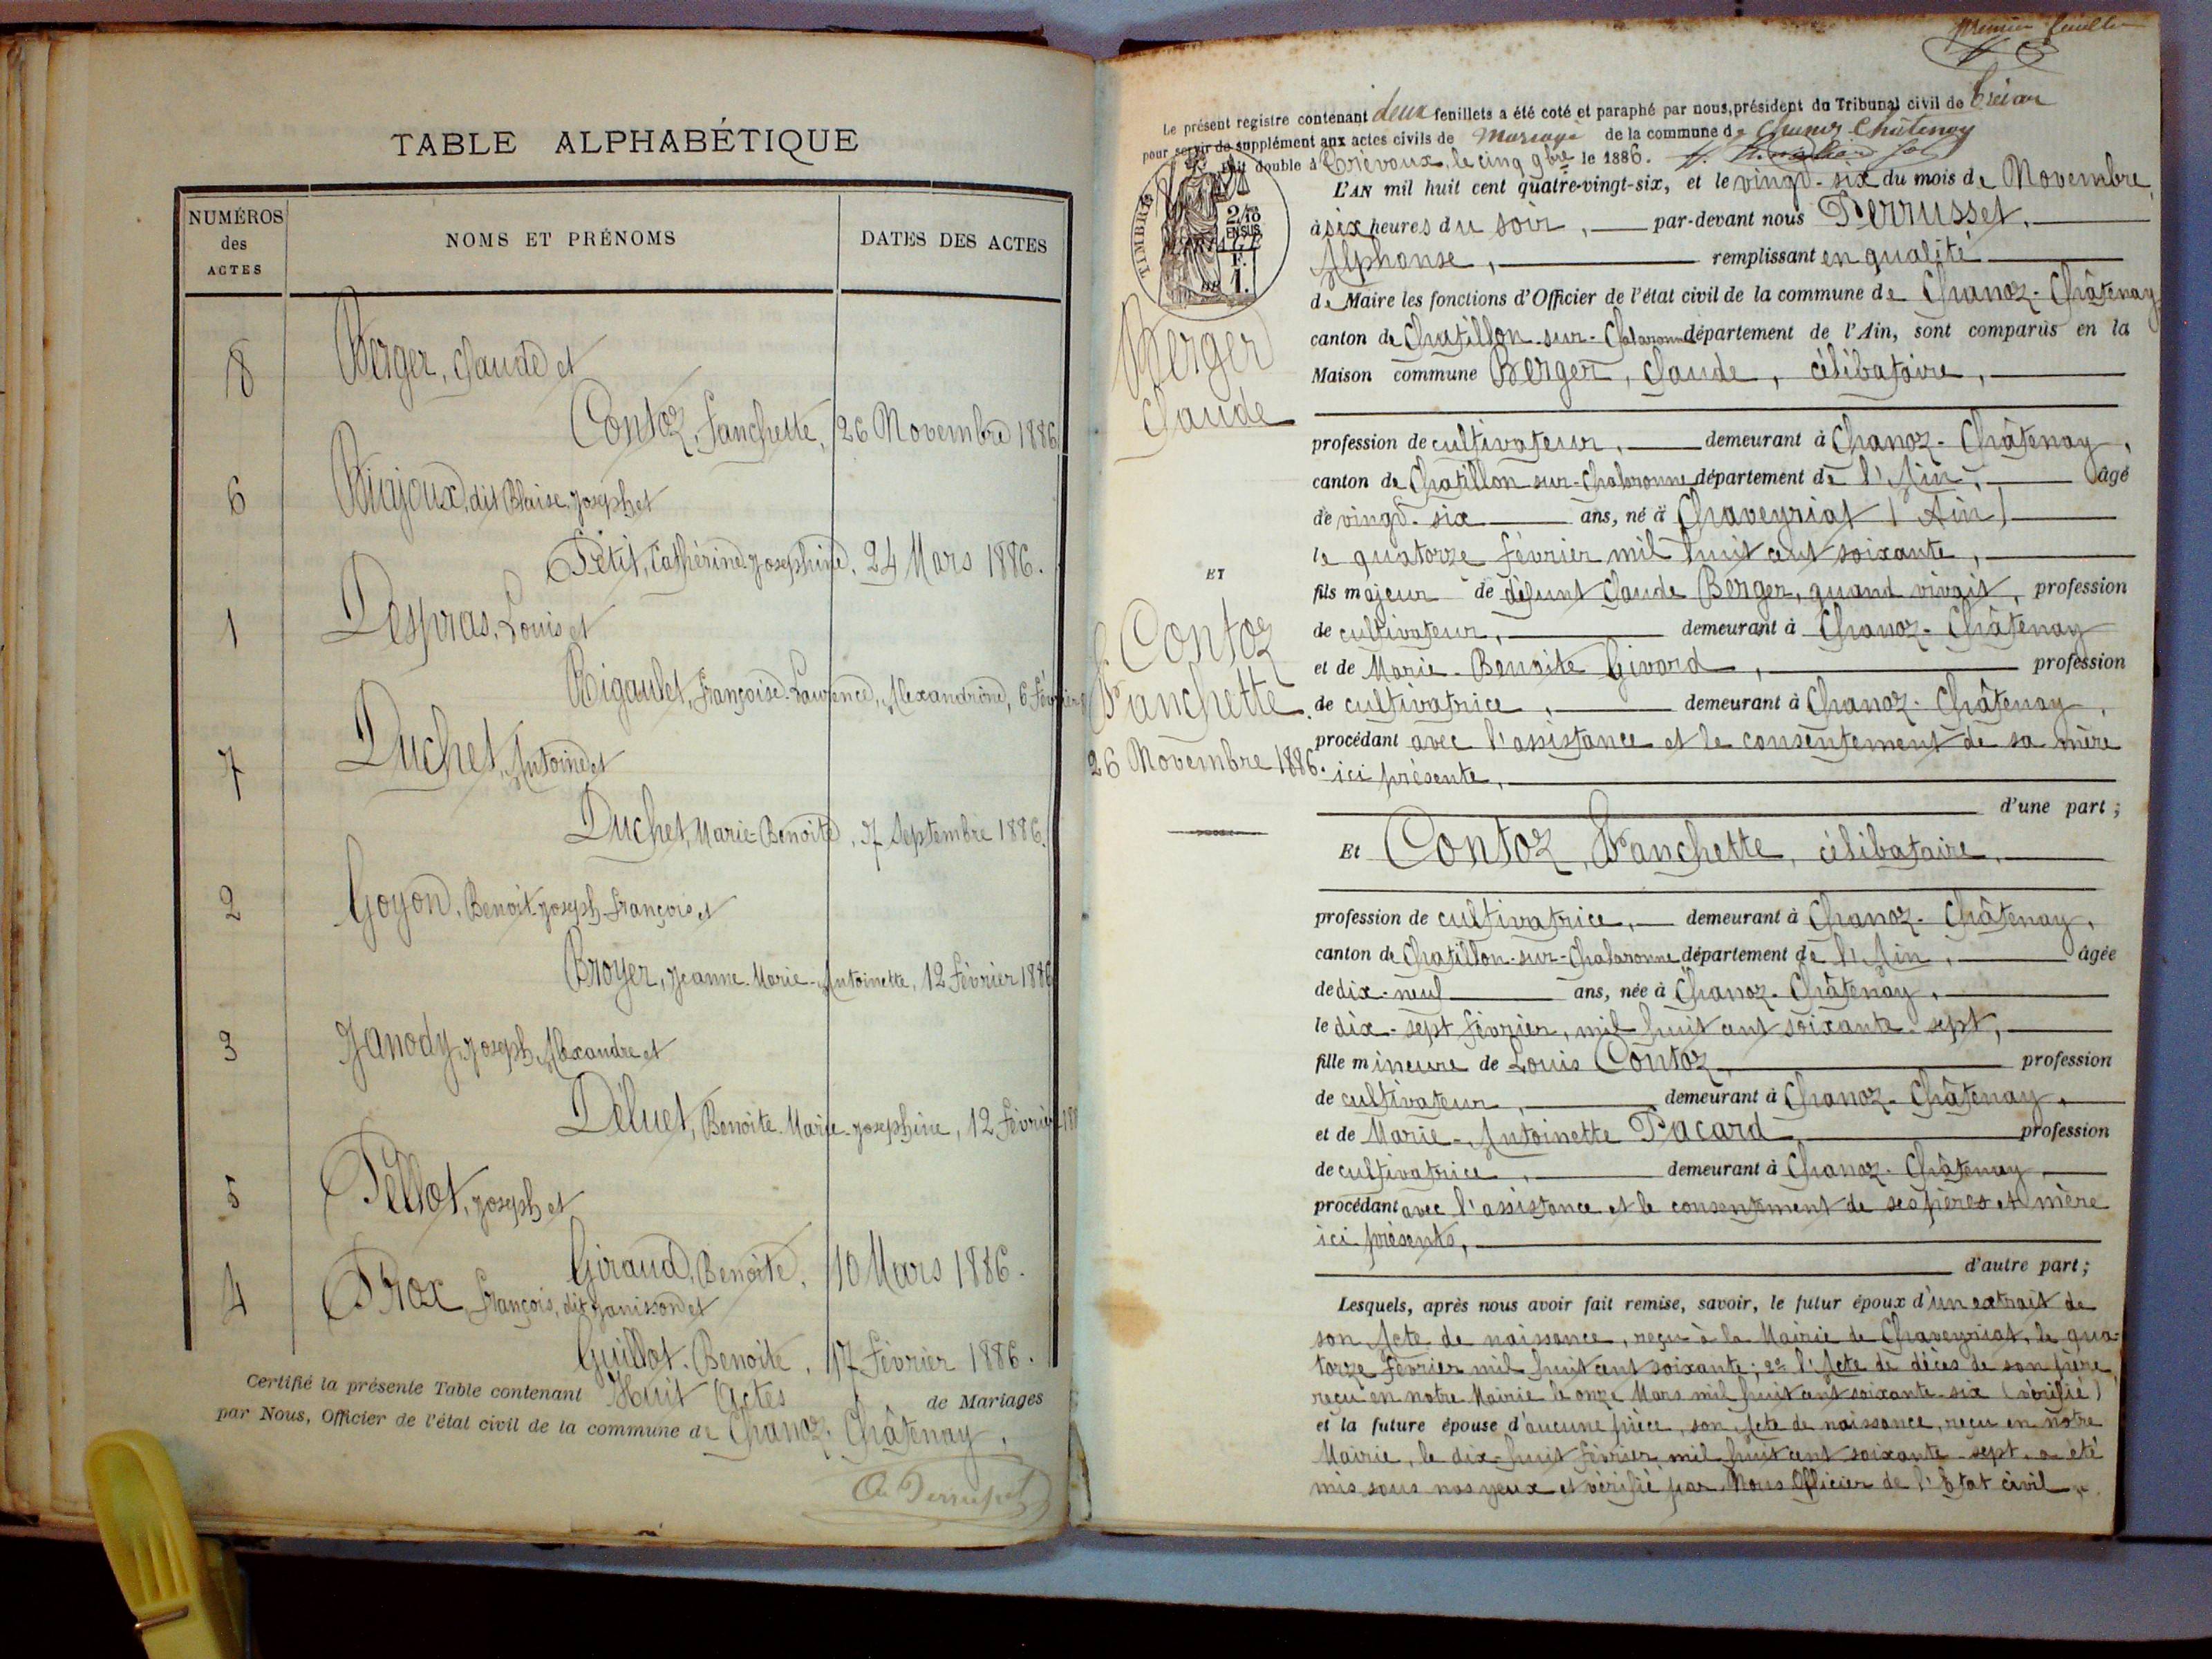 TABLE ALPHABÉTIQUE
NUMÉROS
des
ACTES
NOMS ET PRÉNOMS
DATES DES ACTES
8 Berger, Claude et
Contoz, Fanchette, 26 Novembre 1886
6 dit Blaise, Joseph et
Petit, Cathérine Josephine, 24 Mars 1886.
1 Despras, Louis et
Rigaulet, Françoise-Laurence, Alexandrine, 6 Février
7 Duchet, Antoine et
Duchet, Marie-Benoite, 7 Septembre 1886.
2 Goyon, Benoit Joseph François et
Broyer, Jeanne-Marie-Antoinette, 12 Février 1886
3 Janody, Joseph Alexandre et
Déluet, Benoite-Marie-Josephine, 12 Février 188
5 Pellot, Joseph et
Giraud, Benoite, 10 Mars 1886.
4 Prox, François, dit Janisson et
Guillot, Benoite, 17 Février 1886.
Certifié la présente Table contenant Huit Actes de Mariages
par Nous, Officier de l'état civil de la commune de Chanoz-Châtenay,
premier feuillet
Le présent registre contenant deux feuillets a été coté et paraphé par nous, président du Tribunal civil de
pour servir de supplément aux actes civils de Mariage de la commune de Chanoz-Châtenay
fait double à Trévoux, le cinq 9bre le 1886.
TIMBRE
2/10
EN SUS
1 F.
L'AN mil huit cent quatre-vingt-six, et le vingt-six du mois de Novembre,
à six heures du soir, par-devant nous Perrusset,
Alphonse, remplissant en qualité
de Maire les fonctions d'Officier de l'état civil de la commune de Chanoz-Châtenay
canton de Chatillon-sur-Chalaronne département de l'Ain, sont comparus en la
Maison commune Berger, Claude, célibataire,
Berger
Claude
profession de cultivateur, demeurant à Chanoz-Châtenay,
canton de Chatillon-sur-Chalaronne département de l'Ain, âgé
de vingt-six ans, né à Chaveyriat (Ain)
le quatorze février mil huit cent soixante,
ET
fils majeur de défunt Claude Berger, quand vivait, profession
de cultivateur, demeurant à Chanoz-Châtenay
et de Marie-Benoite Givord, profession
de cultivatrice, demeurant à Chanoz-Châtenay,
procédant avec l'assistance et le consentement de sa mère
ici présente,
Contoz
Fanchette.
26 Novembre 1886.
d'une part;
Et Contoz, Fanchette, célibataire,
profession de cultivatrice, demeurant à Chanoz-Châtenay,
canton de Chatillon-sur-Chalaronne département de l'Ain, âgée
de dix-neuf ans, née à Chanoz-Châtenay,
le dix-sept février, mil huit cent soixante-sept,
fille mineure de Louis Contoz profession
de cultivateur, demeurant à Chanoz-Châtenay,
et de Marie-Antoinette Pacard profession
de cultivatrice, demeurant à Chanoz-Châtenay
procédant avec l'assistance et le consentement de ses pères et mère
ici présents,
d'autre part;
Lesquels, après nous avoir fait remise, savoir, le futur époux d'un extrait de
son Acte de naissance, reçu à la Mairie de Chaveyriat, le qua-
torze février mil huit cent soixante; 2° l'Acte de décès de son père
reçu en notre Mairie le onze Mars mil huit cent soixante-six (vérifié)
et la future épouse d'aucune pièce, son Acte de naissance, reçu en notre
Mairie, le dix-huit février mil huit cent soixante-sept, a été
mis sous nos yeux et vérifié par Nous Officier de l'Etat civil.